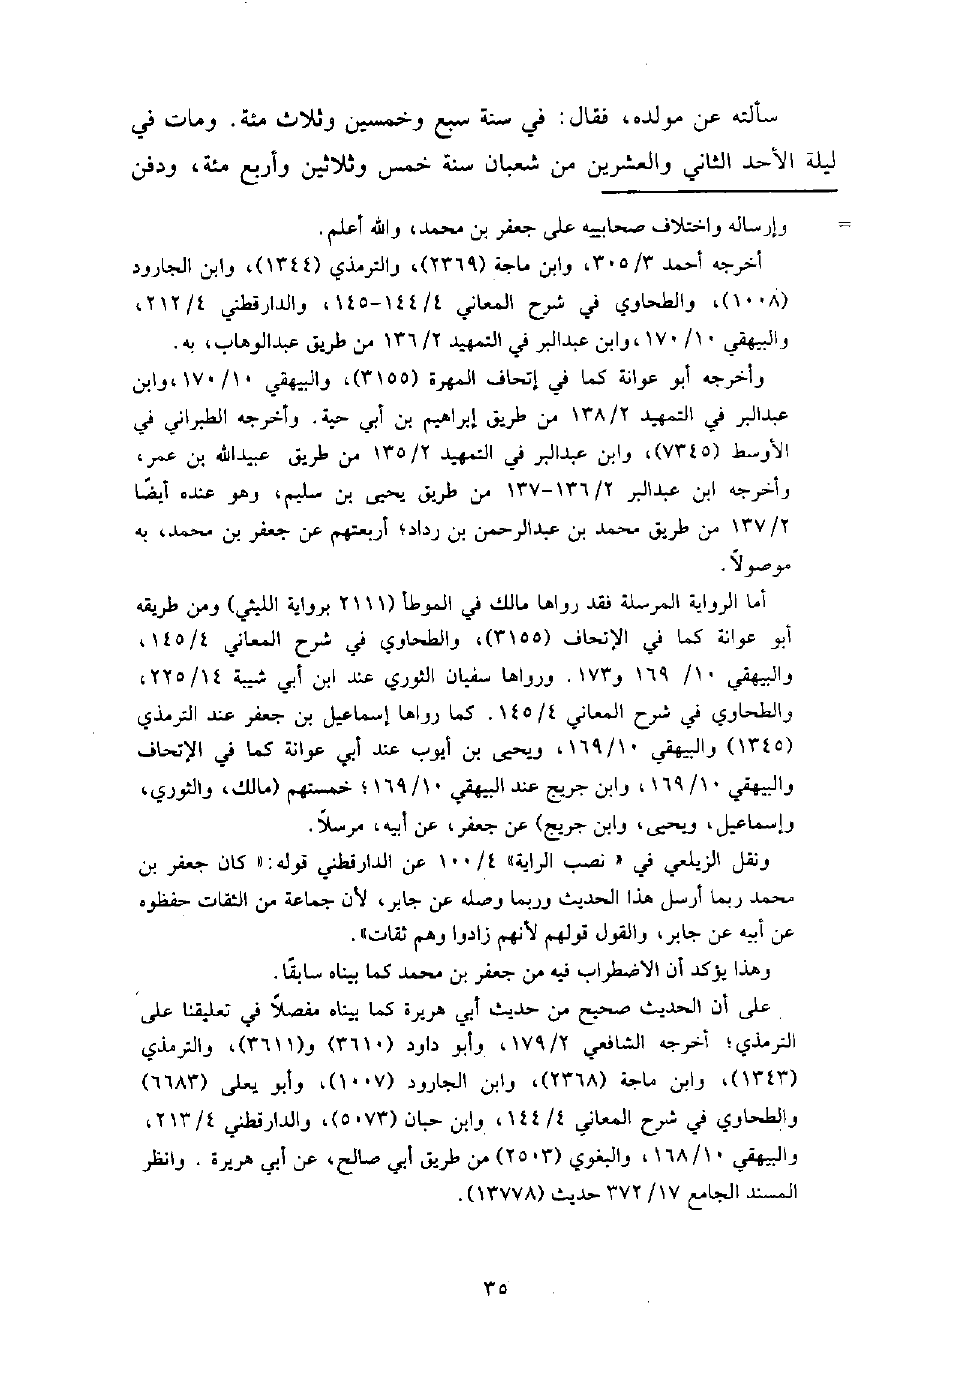 سألته عن مولده، فقال: في سنة سبع وخمسين وثلاث مئة. ومات في
ليلة الأحد الثاني والعشرين من شعبان سنة خمس وثلاثين وأربع مئة، ودفن
= وإرساله واختلاف صحابيه على جعفر بن محمد، والله أعلم.
أخرجه أحمد ٣/ ٣٠٥، وابن ماجة (٢٣٦٩)، والترمذي (١٣٤٤)، وابن الجارود
(١٠٠٨)، والطحاوي في شرح المعاني ٤/ ١٤٤-١٤٥، والدارقطني ٤/ ٢١٢،
والبيهقي ١٠/ ١٧٠، وابن عبدالبر في التمهيد ٢/ ١٣٦ من طريق عبدالوهاب، به.
وأخرجه أبو عوانة كما في إتحاف المهرة (٣١٥٥)، والبيهقي ١٠/ ١٧٠، وابن
عبدالبر في التمهيد ٢/ ١٣٨ من طريق إبراهيم بن أبي حية. وأخرجه الطبراني في
الأوسط (٧٣٤٥)، وابن عبدالبر في التمهيد ٢/ ١٣٥ من طريق عبيدالله بن عمر،
وأخرجه ابن عبدالبر ٢/ ١٣٦-١٣٧ من طريق يحيى بن سليم، وهو عنده أيضًا
٢/ ١٣٧ من طريق محمد بن عبدالرحمن بن رداد؛ أربعتهم عن جعفر بن محمد، به
موصولاً.
أما الرواية المرسلة فقد رواها مالك في الموطأ (٢١١١ برواية الليثي) ومن طريقه
أبو عوانة كما في الإتحاف (٣١٥٥)، والطحاوي في شرح المعاني ٤/ ١٤٥،
والبيهقي ١٠/ ١٦٩ و١٧٣. ورواها سفيان الثوري عند ابن أبي شيبة ١٤/ ٢٢٥،
والطحاوي في شرح المعاني ٤/ ١٤٥. كما رواها إسماعيل بن جعفر عند الترمذي
(١٣٤٥) والبيهقي ١٠/ ١٦٩، ويحيى بن أيوب عند أبي عوانة كما في الإتحاف
والبيهقي ١٠/ ١٦٩، وابن جريج عند البيهقي ١٠/ ١٦٩؛ خمستهم (مالك، والثوري،
وإسماعيل، ويحيى، وابن جريج) عن جعفر، عن أبيه، مرسلاً.
ونقل الزيلعي في « نصب الراية» ٤/ ١٠٠ عن الدارقطني قوله:« كان جعفر بن
محمد ربما أرسل هذا الحديث وربما وصله عن جابر، لأن جماعة من الثقات حفظوه
عن أبيه عن جابر، والقول قولهم لأنهم زادوا وهم ثقات».
وهذا يؤكد أن الاضطراب فيه من جعفر بن محمد كما بيناه سابقًا.
على أن الحديث صحيح من حديث أبي هريرة كما بيناه مفصلاً في تعليقنا على
الترمذي؛ أخرجه الشافعي ٢/ ١٧٩، وأبو داود (٣٦١٠) و(٣٦١١)، والترمذي
(١٣٤٣)، وابن ماجة (٢٣٦٨)، وابن الجارود (١٠٠٧)، وأبو يعلى (٦٦٨٣)
والطحاوي في شرح المعاني ٤/ ١٤٤، وابن حبان (٥٠٧٣)، والدارقطني ٤/ ٢١٣،
والبيهقي ١٠/ ١٦٨، والبغوي (٢٥٠٣) من طريق أبي صالح، عن أبي هريرة . وانظر
المسند الجامع ١٧/ ٣٧٢ حديث (١٣٧٧٨).
٣٥